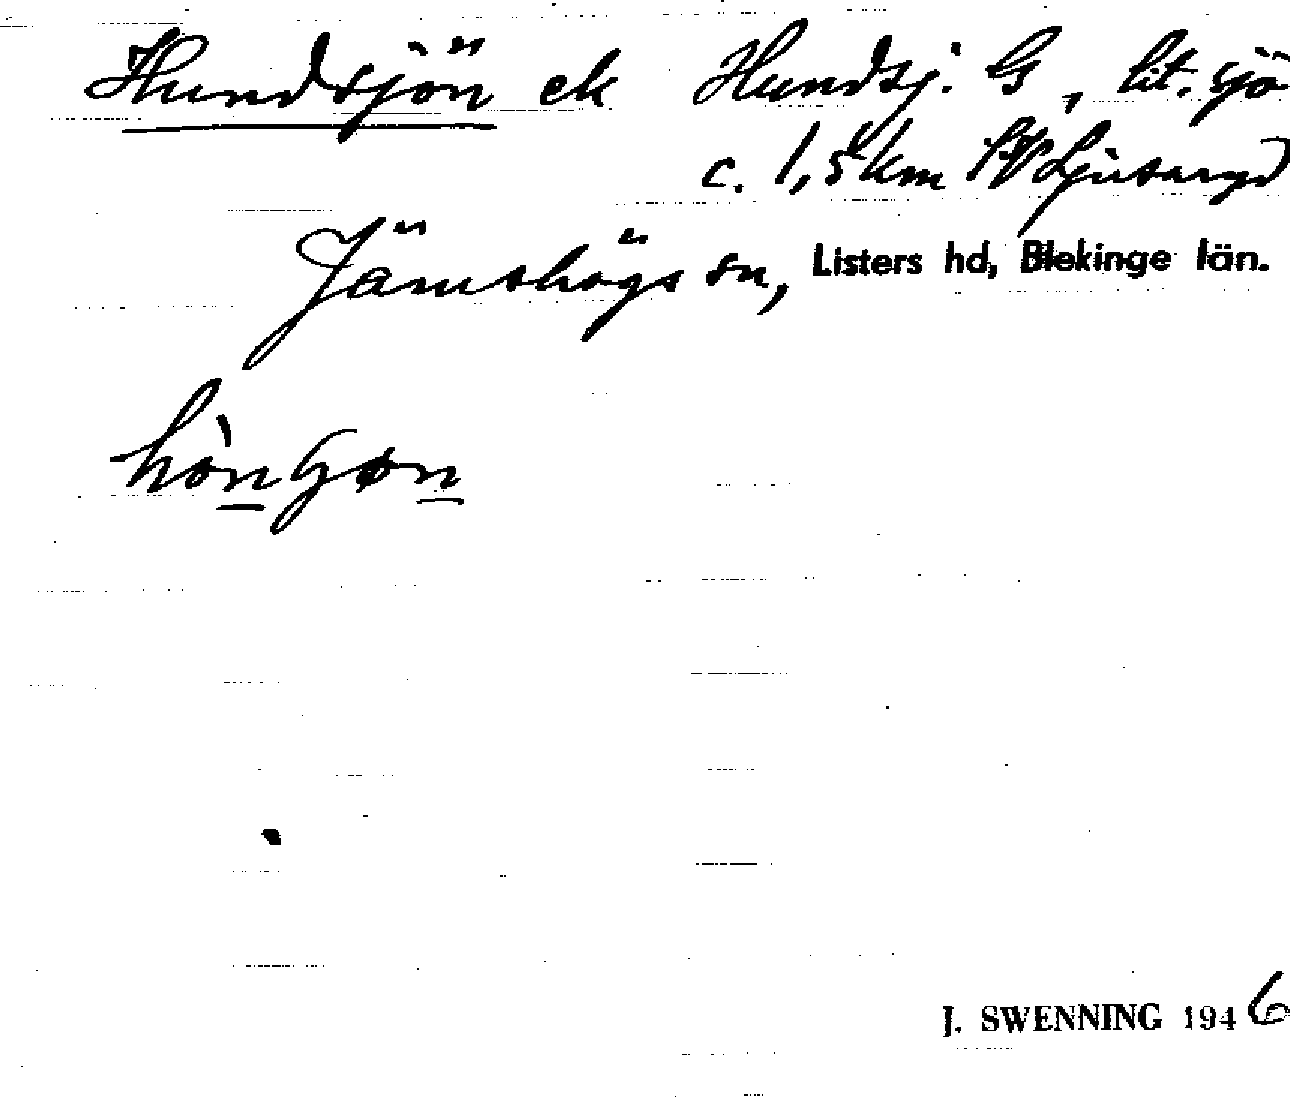 Hundsjön ek Hundsj. G, lit. sjö
c. 1,5 km Ljusaryd
Jämshögs sn, Listers hd, Blekinge län.
J. SWENNING 1946